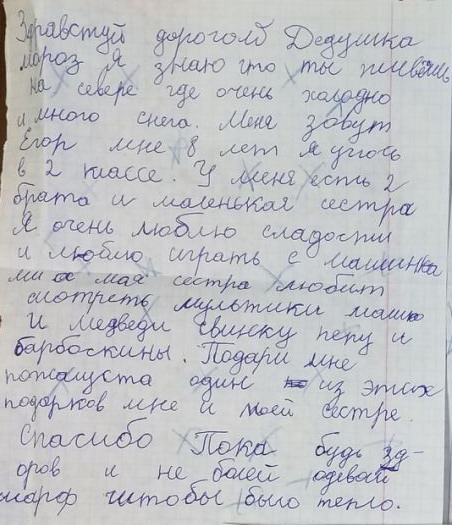 Здравствуй дорогой Дедушка
мороз Я знаю что ты живёшь
на севере где очень холодно
и много снега. Меня зовут
Егор мне 8 лет я учюсь
в 2 классе. У меня есть 2
брата и маленькая сестра
Я очень люблю сладости
и люблю играть с машинка
ми а мая сестра любит
смотреть мультики маша
И медведи свинку пепу и
барбоскины. Подари мне
пожалуста один из этих
подарков мне и моей сестре.
Спасибо Пока будь зд-
оров и не болей одевай
шарф чштобы было тепло.